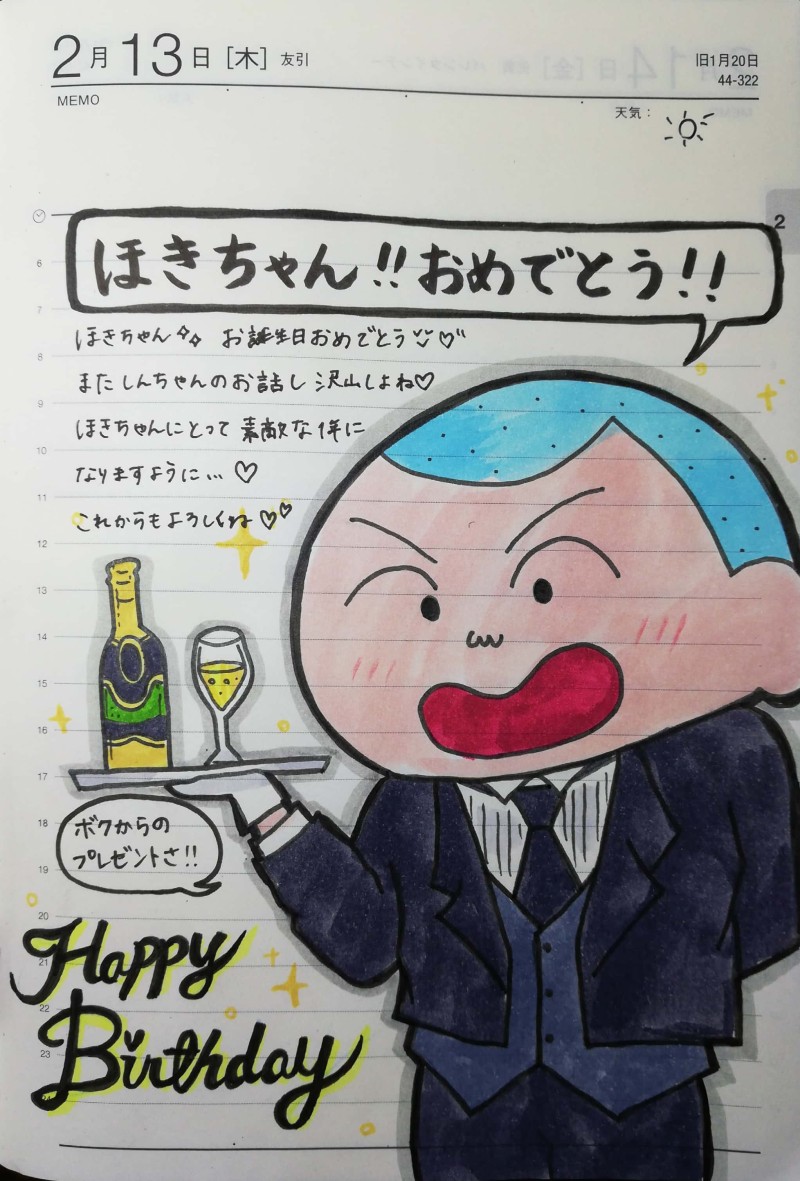 2月13日[木] 友引
旧1月20日
44-322
MEMO
天気：
2
ほきちゃん!!おめでとう!!
ほきちゃん お誕生日おめでとう♡
またしんちゃんのお話し沢山しよね♡
ほきちゃんにとって素敵な1年に
なりますように…♡
これからもよろしくね♡♡
6
7
8
9
10
11
12
13
14
15
16
17
18
19
20
21
22
23
ボクからの
プレゼントさ!!
Happy
Birthday